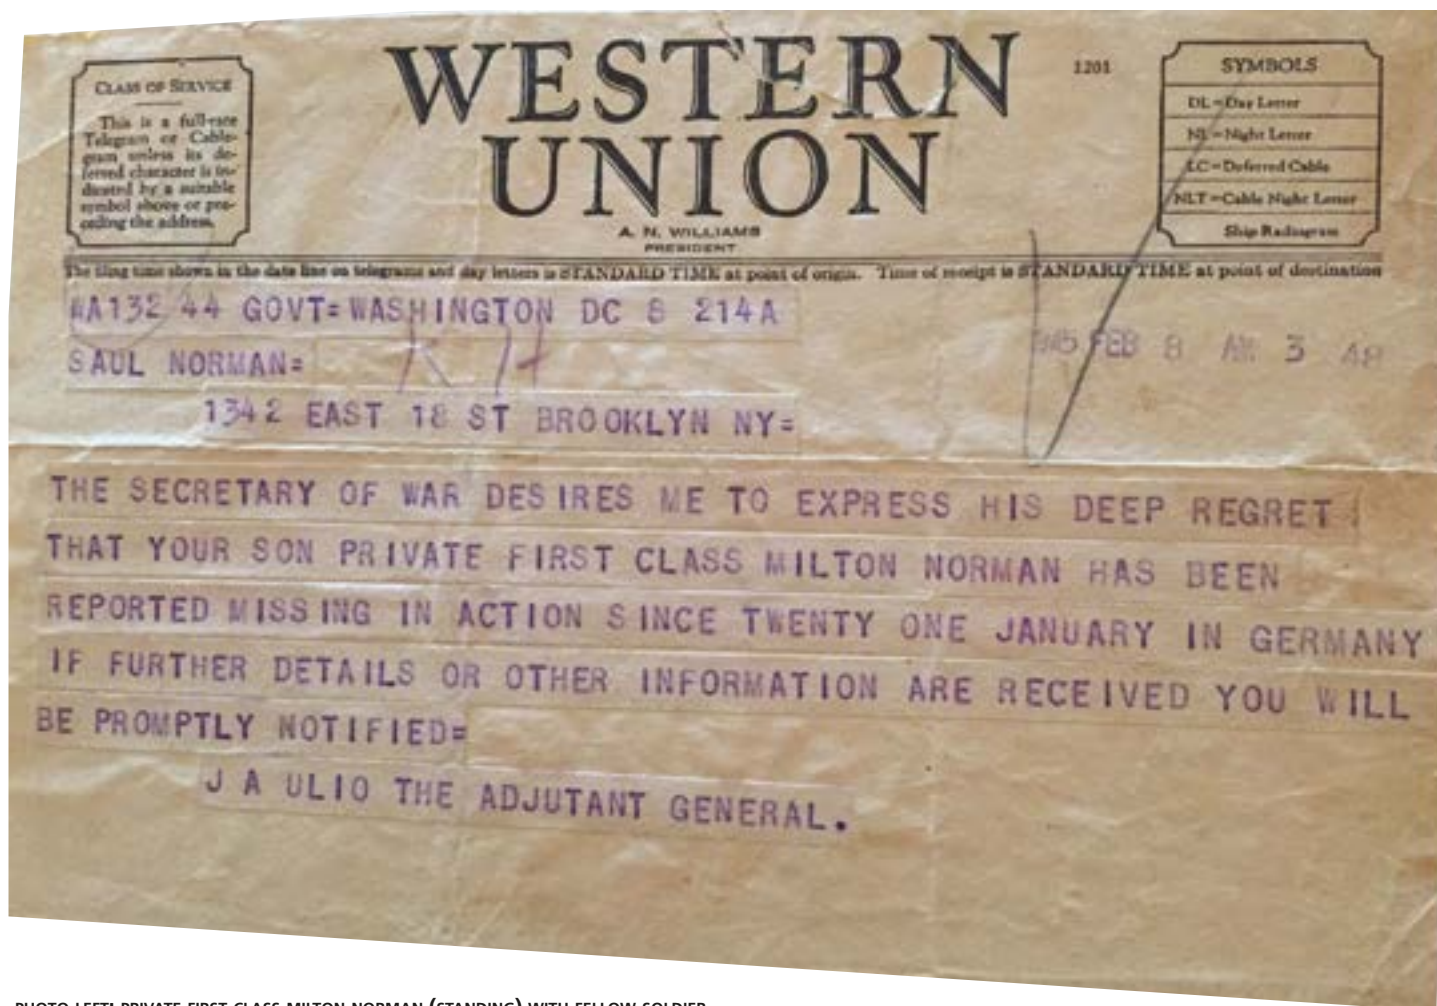 WESTERN
UNION
1201
A. N. WILLIAMS
PRESIDENT
CLASS OF SERVICE
This is a full-rate
Telegram or Cable-
gram unless its de-
ferred character is in-
dicated by a suitable
symbol above or pre-
ceding the address.
SYMBOLS
DL=Day Letter
NL=Night Letter
LC=Deferred Cable
NLT=Cable Night Letter
Ship Radiogram
The filing time shown in the date line on telegrams and day letters is STANDARD TIME at point of origin. Time of receipt is STANDARD TIME at point of destination
WA132 44 GOVT=WASHINGTON DC 8 214A
1945 FEB 8 AM 3 48
SAUL NORMAN=
1342 EAST 18 ST BROOKLYN NY=
THE SECRETARY OF WAR DESIRES ME TO EXPRESS HIS DEEP REGRET
THAT YOUR SON PRIVATE FIRST CLASS MILTON NORMAN HAS BEEN
REPORTED MISSING IN ACTION SINCE TWENTY ONE JANUARY IN GERMANY
IF FURTHER DETAILS OR OTHER INFORMATION ARE RECEIVED YOU WILL
BE PROMPTLY NOTIFIED=
J A ULIO THE ADJUTANT GENERAL.
PHOTO LEFT: PRIVATE FIRST CLASS MILTON NORMAN (STANDING) WITH FELLOW SOLDIER